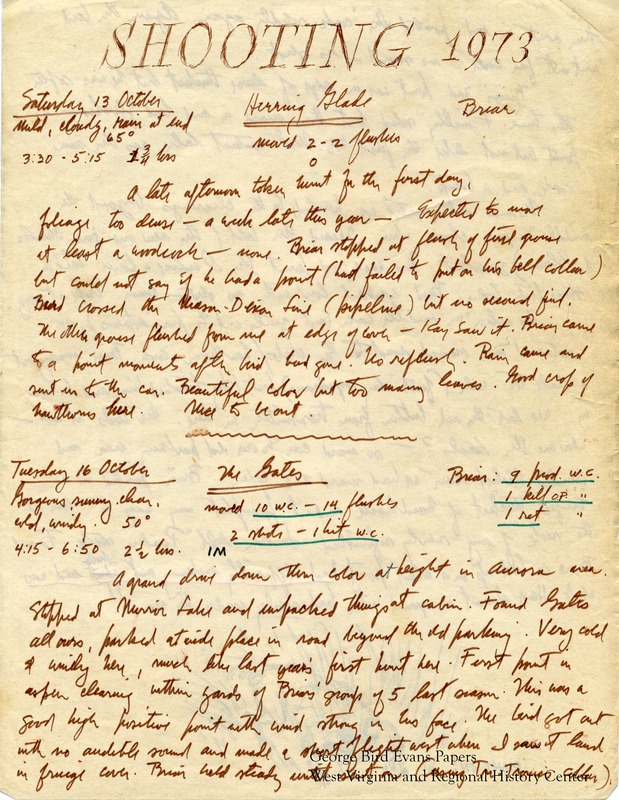 SHOOTING 1973
Saturday 13 October Herring Glade Briar
Mild, cloudy, rain at end
65° moved 2-2 flushes
3:30 - 5:15 1 3/4 hrs 0
A late afternoon token hunt for the first day,
foliage too dense — a week late this year — Expected to move
at least a woodcock — none. Briar stopped at flush of first grouse
but could not say if he had a point (had failed to put on his bell collar)
Bird crossed the Mason-Dixon Line (pipeline) but no second find.
The other grouse flushed from me at edge of cover — Kay saw it. Briar came
to a point moments after bird had gone. No reflush. Rain came and
sent us to the car. Beautiful color but too many leaves. Good crop of
hawthorns here. Nice to be out.
Tuesday 16 October The Gates Briar: 9 prod. w.c.
Gorgeous, sunny, clear, 1 kill op "
cold, windy. 50° moved 10 w.c. - 14 flushes 1 ret "
2 shots - 1 hit w.c.
4:15 - 6:50 2 1/2 hrs. 1M
A grand drive down thru color at height in Aurora area.
Stopped at Mirror Lake and unpacked things at cabin. Found Gates
all ours, parked at wide place in road beyond the old parking. Very cold
& windy here, much like last year's first hunt here. First point in
aspen clearing within yards of Briar's group of 5 last season. This was a
good high positive point with wind strong in his face. The bird got out
with no audible sound and made a short flight west where I saw it land
in fringe cover. Briar held steady
George Bird Evans Papers
West Virginia and Regional History Center